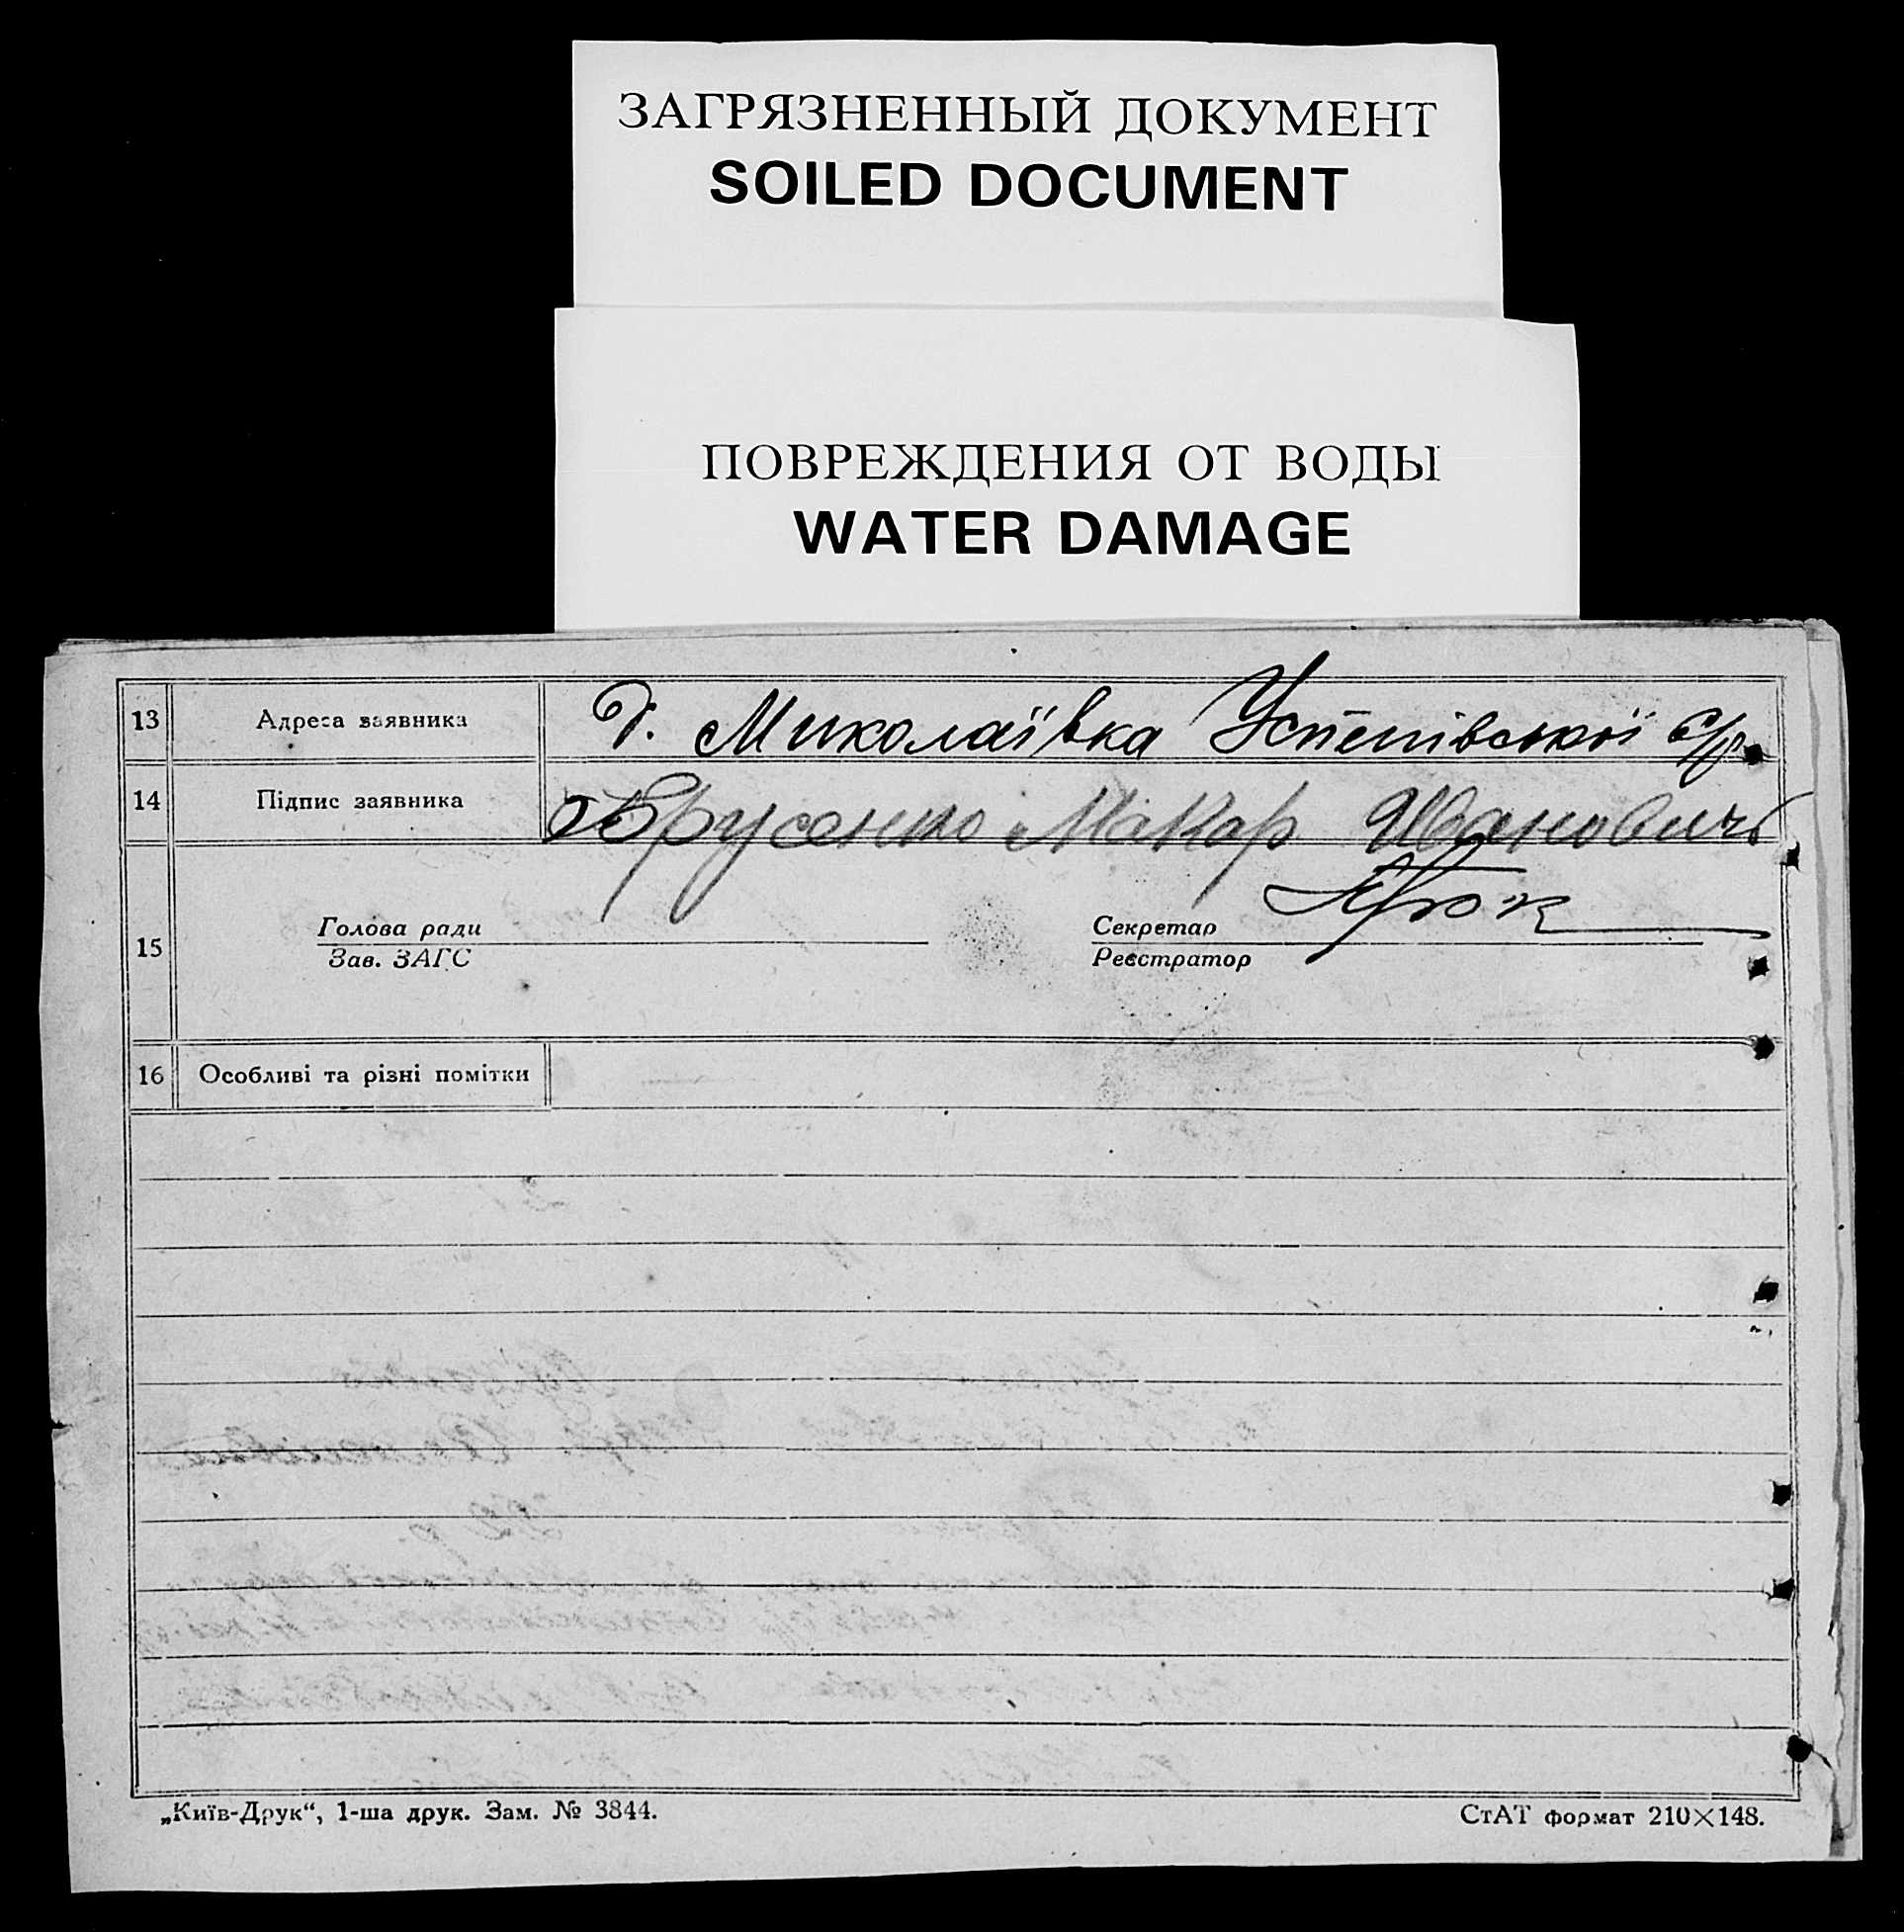 ЗАГРЯЗНЕННЫЙ ДОКУМЕНТ
SOILED DOCUMENT
ПОВРЕЖДЕНИЯ ОТ ВОДЫ
WATER DAMAGE
13 Адреса заявника д. Миколаївка Успенівської с/р.
14 Підпис заявника Брусенко Макар Ивановичь
15 Голова ради Секретар
Зав. ЗАГС Реєстратор
16 Особливі та різні помітки
„Київ-Друк“, 1-ша друк. Зам. № 3844. СтАТ формат 210×148.